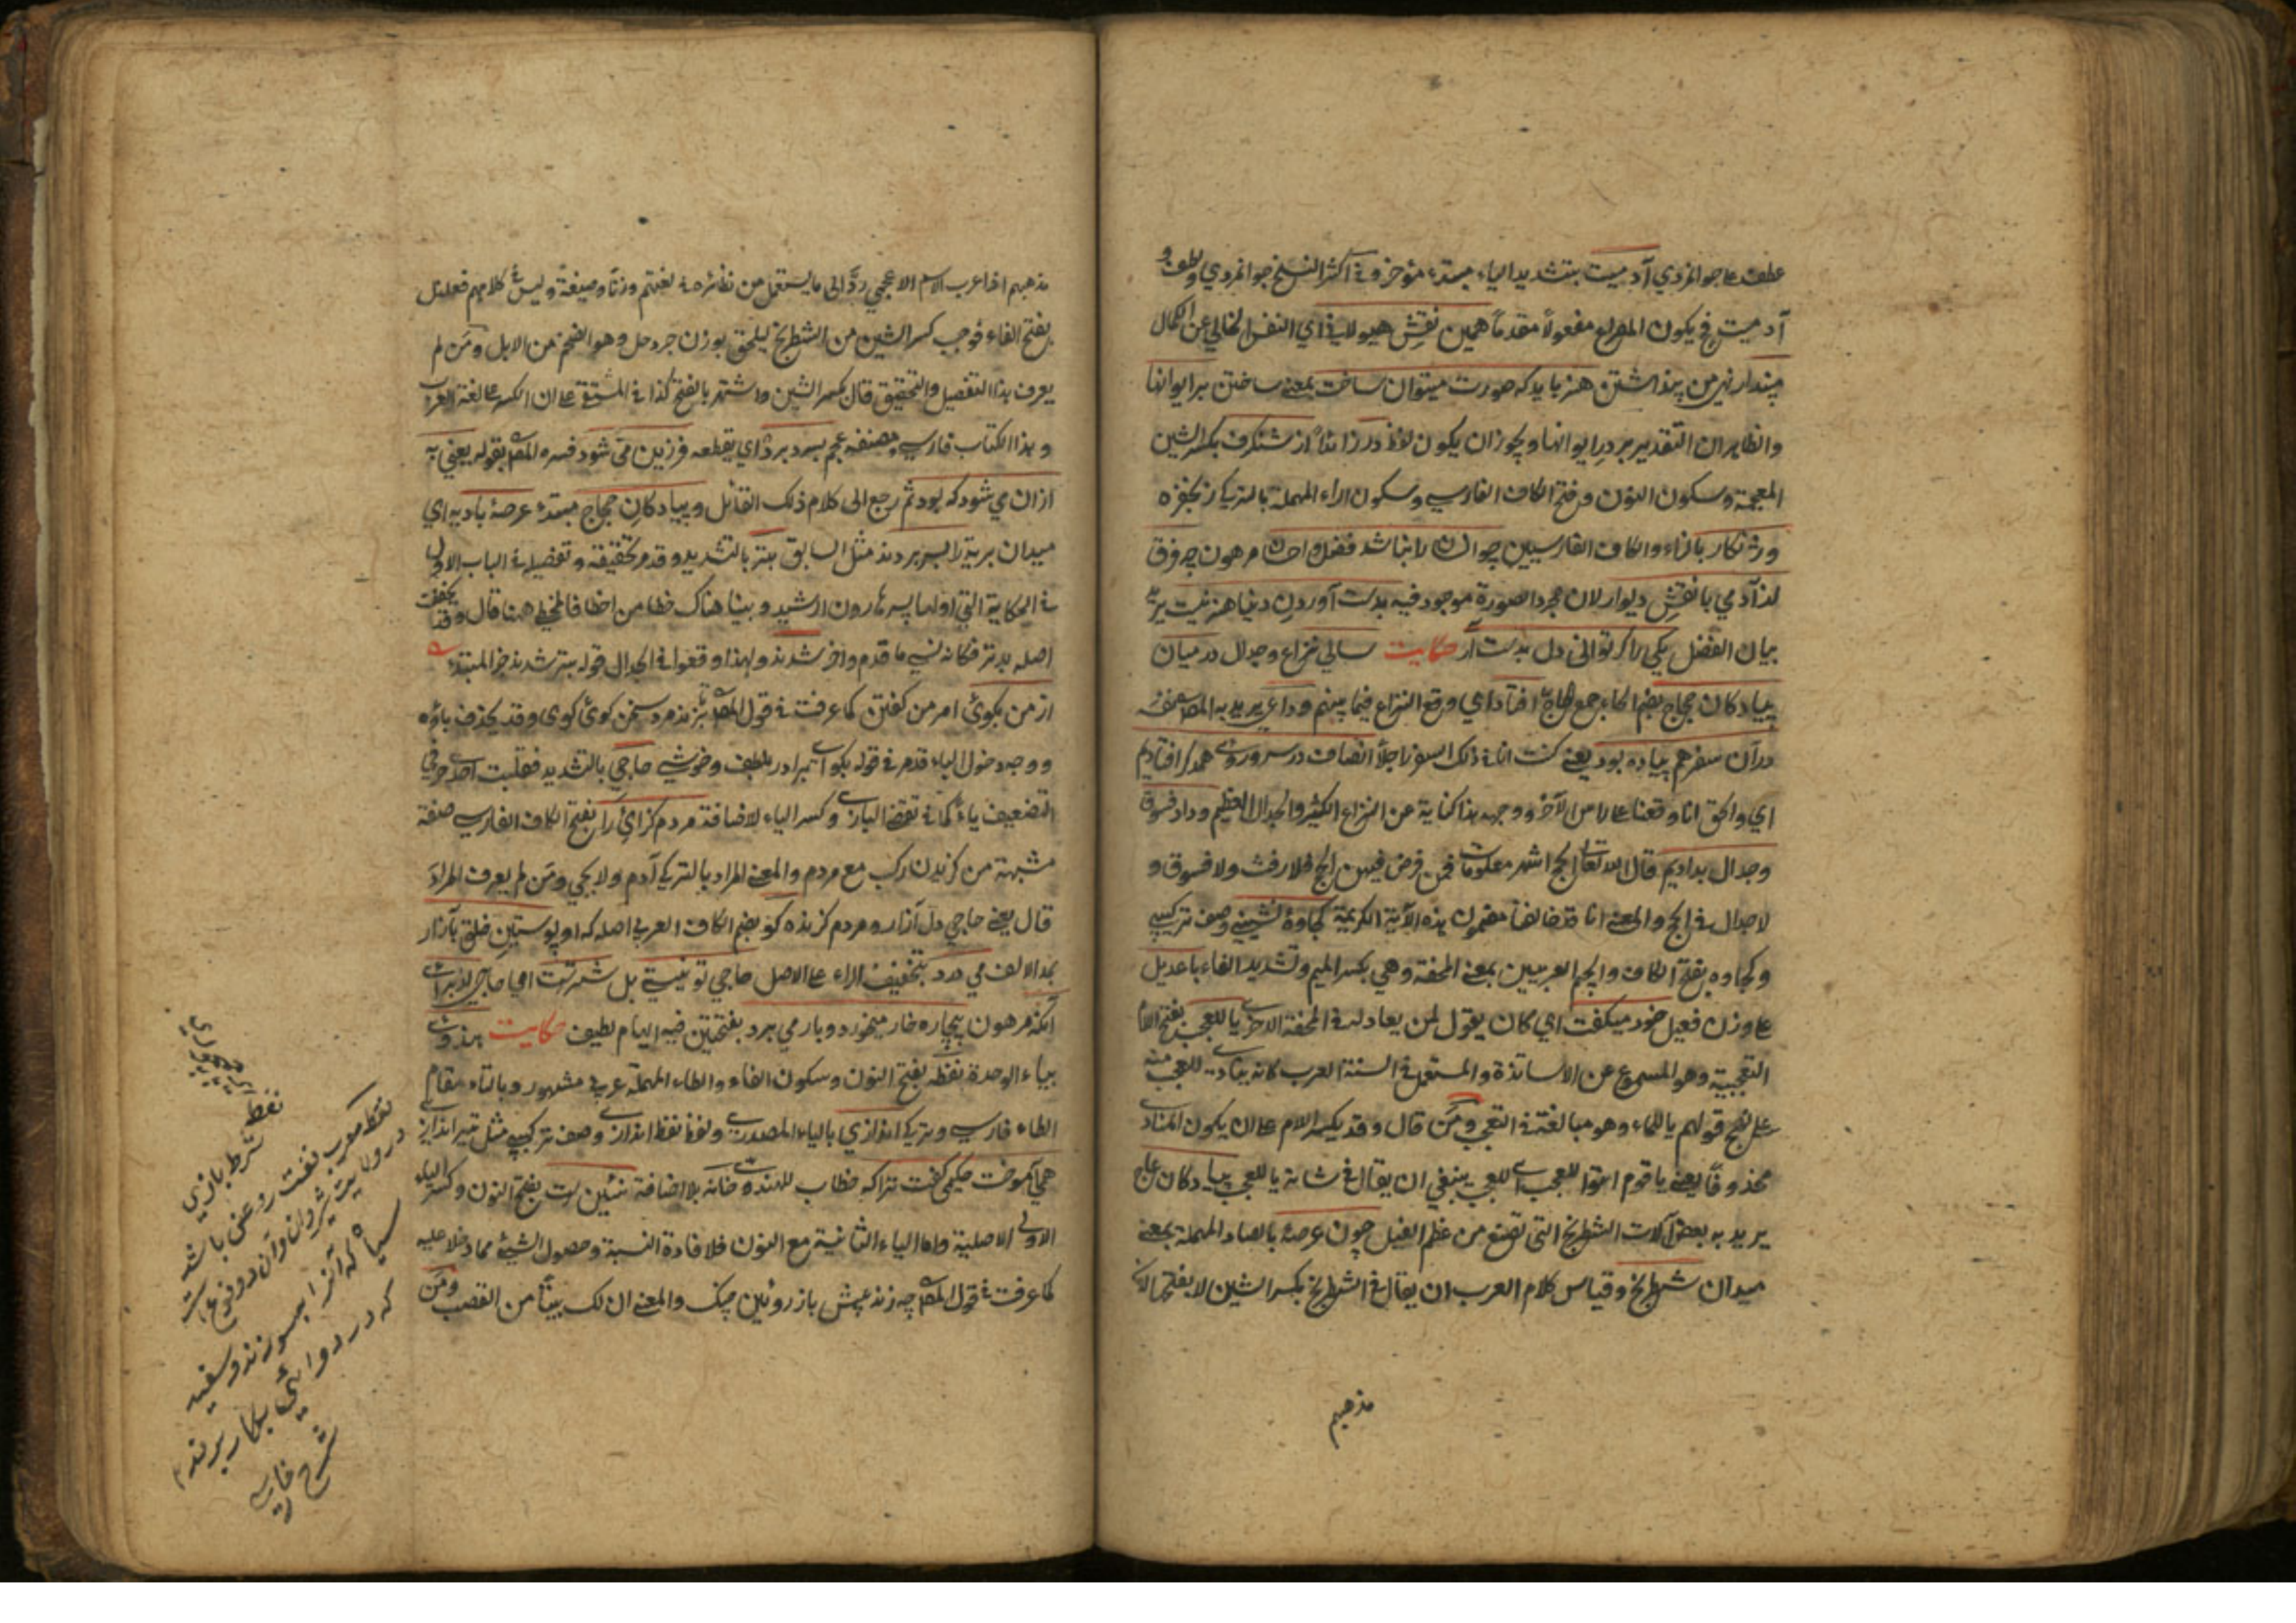 عطف علی جوانمردي آدمیت بتشدید الیاء مبتدء مؤخر وفي اکثر النسخ جوانمردي ولطف و
آدمیت فح یکون المصراع مفعولاً مقدماً همین نقش هیولایي اي النفس الخالي عن الکمال
مپندار نهي من پنداشتن هنر باید که صورت میتوان ساخت بمعنی ساختن برایوانها
والظاهر ان التقدیر بر در ایوانها ویجوز ان یکون لفظ در زائداً از شنکرف بکسر الشین
المعجمة وسکون النون وفتح الکاف الفارسي وسکون الراء المهملة بالترکي زنجفره
وژنکار بالزاء والکاف الفارسیین چو انسان را نباشد فضل واحسان مرهون چه فرق
از آدمي با نقش دیوار لان مجرد الصورة موجود فیه بدست آوردن دنیا هنر نیست یرید
بیان الفضل یکي را کر تواني دل بدست آر حکایت سالي نزاع وجدال در میان
پیادکان حجاج بضم الحاء جمع الحاج افتاد اي وقع النزاع فیما بینهم وداعي یرید به المص نفسه
در آن سفر هم پیاده بود یعني کنت انا في ذلک السفر راجلاً انصاف در سر وروي همدکر افتادیم
اي والحق انا وقعنا علی راس الآخر ووجهه هذا کنایة عن النزاع الکثیر والجدال العظیم وداد فسوق
وجدال بدادیم قال الله تعالی الحج اشهر معلومات فمن فرض فیهن الحج فلا رفث ولا فسوق و
لا جدال في الحج والمعنی انا قد خالفنا مضمون هذه الآیة الکریمة کجاوه نشیني وصف ترکیبي
وکجاوه بفتح الکاف والجیم العربیین بمعنی المحفة وهي بکسر المیم وتشدید الفاء با عدیل
علی وزن فعیل خود میکفت اي کان یقول لمن یعادله في المحفة الاخری یا للعجب بفتح اللام
التعجبیة وهو المسموع عن الاساتذة والمستعمل في السنة العرب کانه ینادي للعجب منه
علی نهج قولهم یا للماء وهو مبالغة في التعجب ومن قال وقد یکسر اللام علی ان یکون المنادی
محذوفاً یعني یا قوم انتوا للعجب اي للعجب ینبغي ان یقال في شانه یا للعجب پیادکان عاج
یرید به بعض آلات الشطرنج التي تصنع من عظم الفیل چون عرصهٔ بالصاد المهملة بمعنی
میدان شطرنج وقیاس کلام العرب ان یقال في الشطرنج بکسر الشین لا بفتحها لان
مذهبهم
مذهبهم اذا عرب الاسم الاعجمي ردّ الی ما یستعمل من نظائره في لغتهم وزناً وصیغة ولیس في کلامهم فعلل
بفتح الفاء فوجب کسر الشین من الشطرنج لیلحق بوزن جردحل وهو الضخم من الابل ومن لم
یعرف هذا التفصیل والتحقیق قال بکسر الشین واشتهر بالفتح کذا في المشتق علی ان الکسر علی لغة العرب
وهذا الکتاب فارسي ومصنفه عجم بسر برد اي یقطعه فرزین مي شود فسره المص بقوله یعني به
از ان مي شود که بود ثم رجع الی کلام ذلک القائل وپیادکان حجاج مبتدء عرصهٔ بادیه اي
میدان بریة را بسر بردند مثل السابق بتر بالتشدید وقد مر تحقیقه وتفصیله في الباب الاول
في الحکایة التي اولها پسر هارون الرشید وبینا هناک خطا من اخطا فالمخطي ههنا قال وقد یخفف
اصله بدتر فکانه نسي ما قدم واخر شدند ولهذا وقعوا في الجدال قوله بتر شدند خبر المبتدء
از من بکوي امر من کفتن کما عرفت في قول المص نیزند مرد سخن کوي وقد یحذف باؤه
ووجه دخول الباء قد مر في قوله بکو اي برادر بلطف وخوشي حاجي بالتشدید فقلبت احدی حرفي
التضعیف یاء کما في تقضي البازي وکسر الیاء لاضافة مردم کزاي را بفتح الکاف الفارسي صفة
مشبهة من کزیدن رکب مع مردم والمعنی المراد بالترکي آدم ولا یجي ومن لم یعرف المراد
قال یعني حاجي دل آزار ومردم کزنده کو بضم الکاف العربي اصله که او پوستین خلق بآزار
بمد الالف مي درد بتخفیف الراء علی الاصل حاجي تو نیستي بل شترست اي حاجي از براي
آنکه مرهون بیچاره خار میخورد وبار مي برد بفتحتین فیه ایهام لطیف حکایت هندوي
بیاء الوحدة نفط بفتح النون وسکون الفاء والطاء المهملة عربي مشهور وبالتاء مقام
الطاء فارسي وترکي اندازي بالیاء المصدري ولفظ نفط انداز وصف ترکیبي مثل تیر انداز
همي آموخت حکیمي کفت ترا که خطاب للهندو خانه بلا اضافة نئین ست بفتح النون وکسر الیاء
الاولی الاصلیة واما الیاء الثانیة مع النون فلافادة النسبة وحصول الشيء مما دخلا علیه
کما عرفت في قول المص چه زند پیش باز روئین چنک والمعنی ان لک بیتاً من القصب ومن
نفط
نفط معرب نفت روغني باشد
در ولایت شیروان وآن دو نوع است
سیاه که آنرا بسوزند وسفید
که در دوائي بکار برند
شرح فارسي